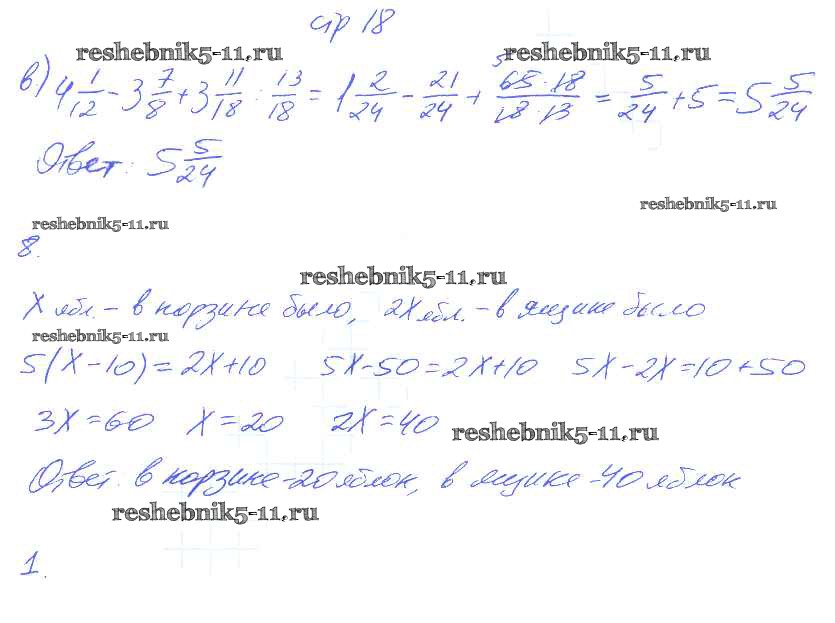 стр 18
reshebnik5-11.ru reshebnik5-11.ru
в) 4 1/12 - 3 7/8 + 3 11/18 : 13/18 = 1 2/24 - 21/24 + 65·18/18·13 = 5/24 + 5 = 5 5/24
5
Ответ: 5 5/24
reshebnik5-11.ru
reshebnik5-11.ru
8.
reshebnik5-11.ru
X ябл. - в корзине было, 2X ябл. - в ящике было
reshebnik5-11.ru
5(X-10)=2X+10 5X-50=2X+10 5X-2X=10+50
3X=60 X=20 2X=40
reshebnik5-11.ru
Ответ. в корзине -20 яблок, в ящике -40 яблок
reshebnik5-11.ru
1.